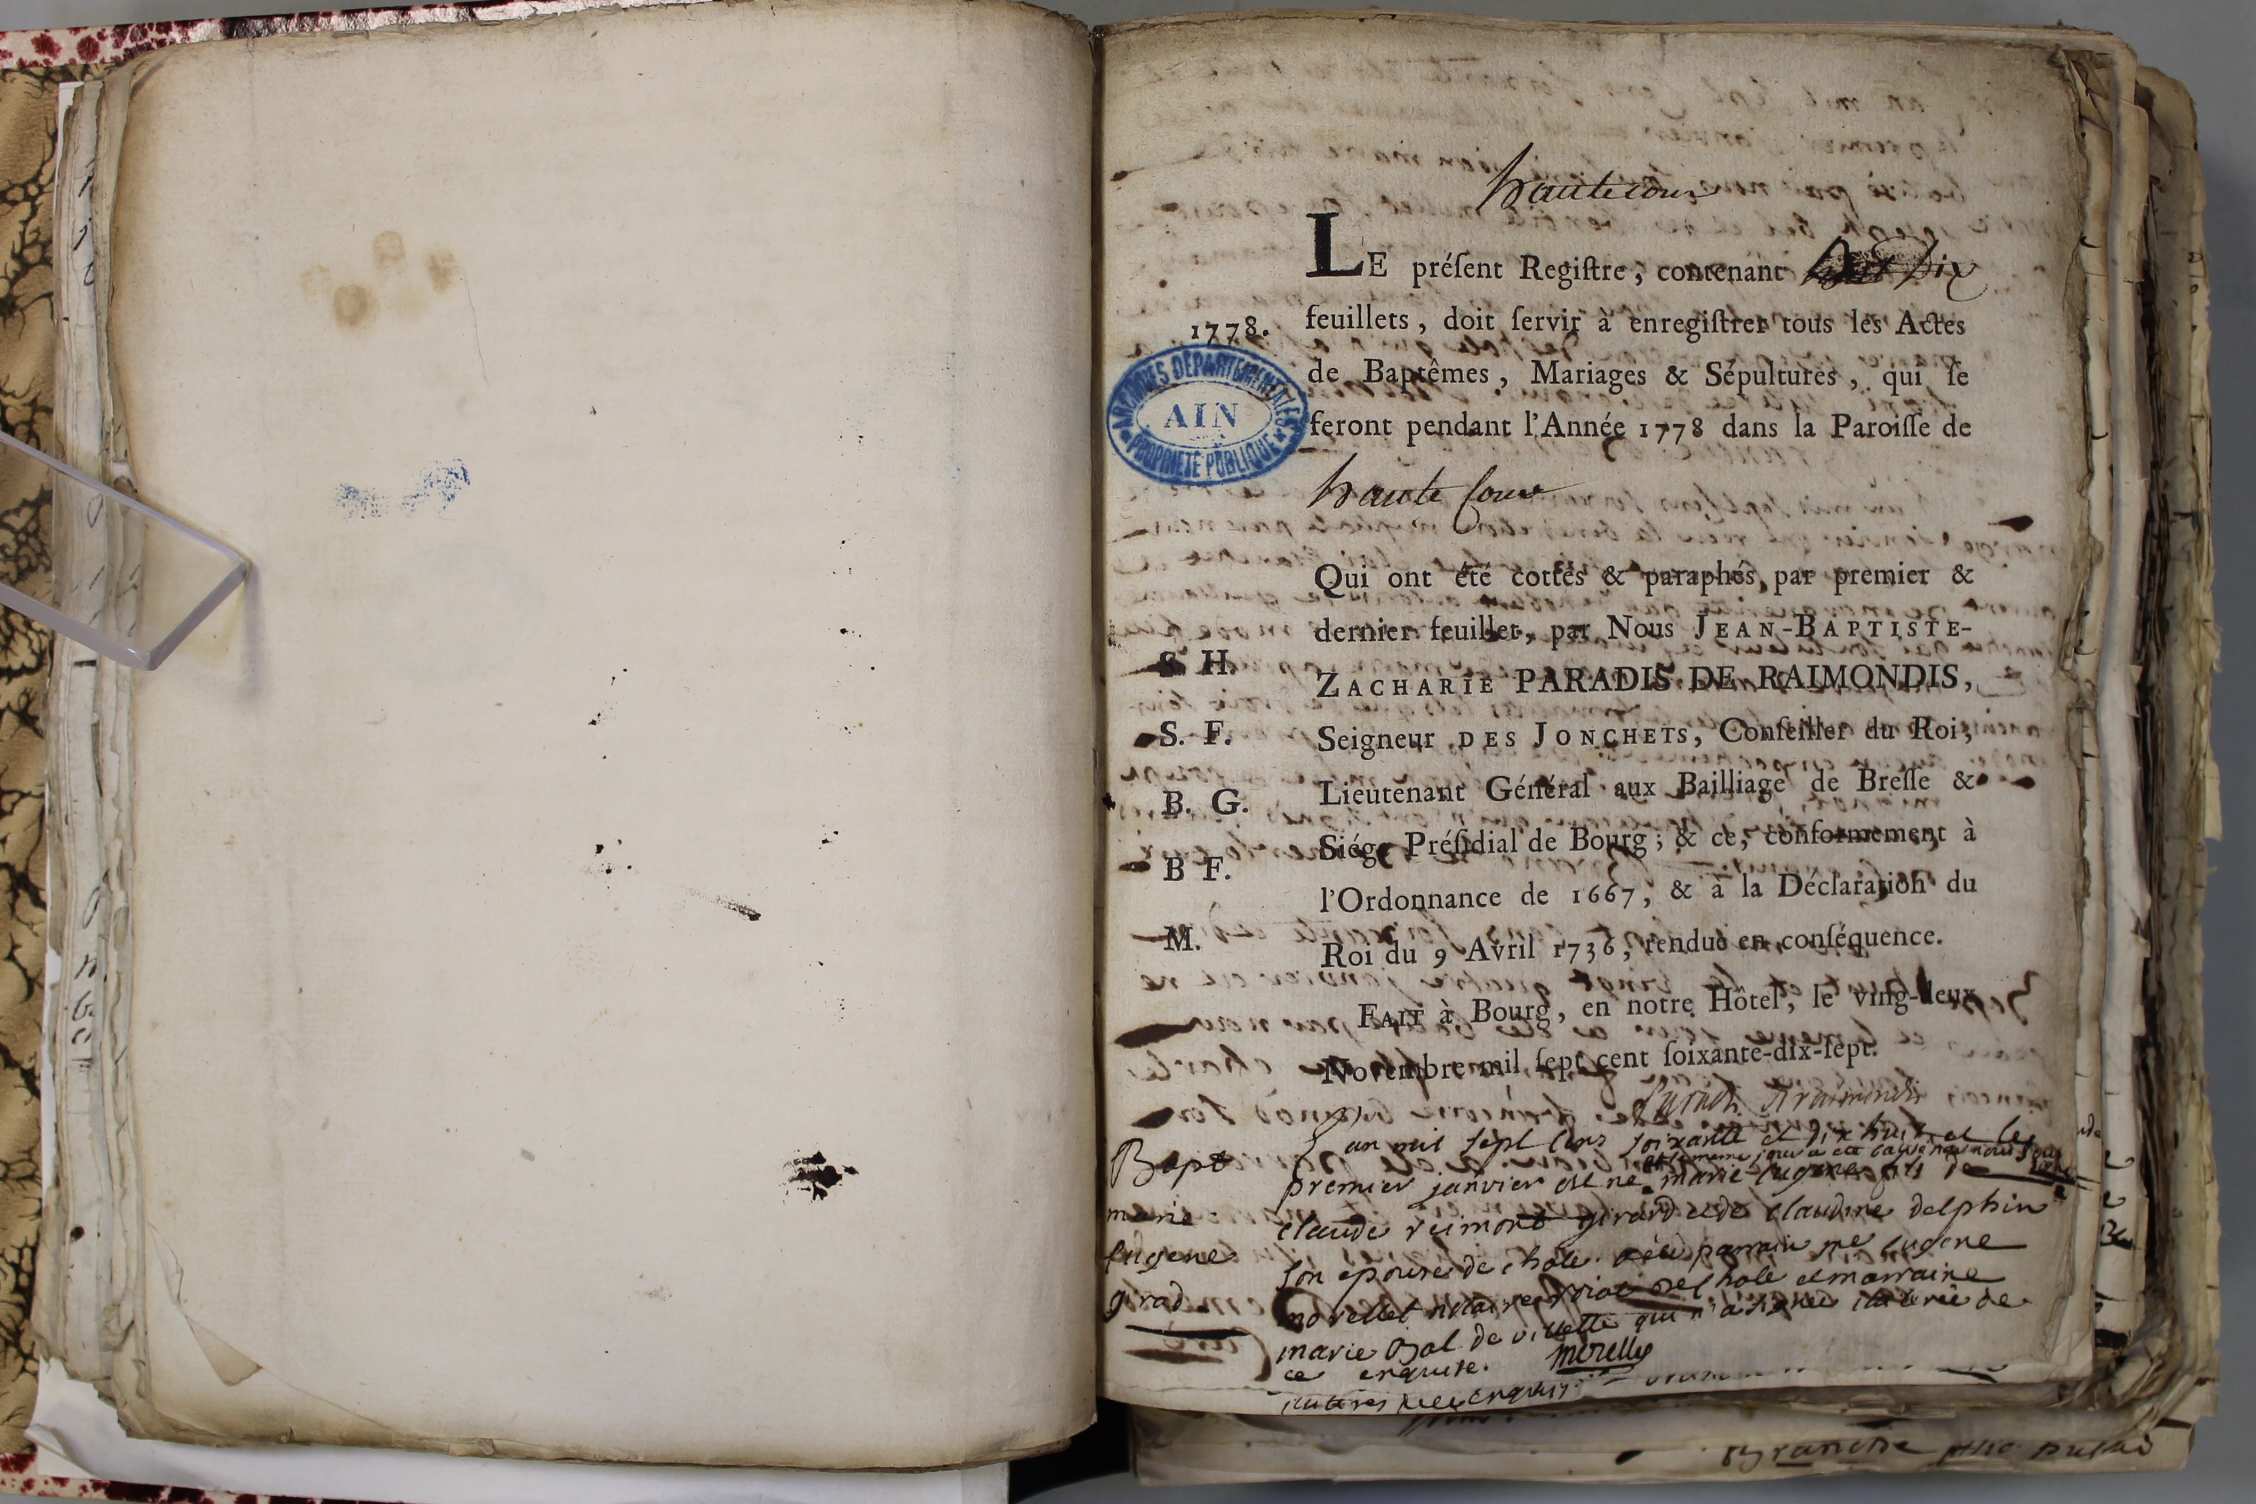 hautecour
LE préſent Regiſtre, contenant dix
feuillets, doit ſervir à enregiſtrer tous les Actes
1778.
de Baptêmes, Mariages & Sépultures, qui ſe
feront pendant l'Année 1778 dans la Paroiſſe de
ARCHIVES DÉPARTEMENTALES
AIN
PROPRIÉTÉ PUBLIQUE
haute Cour
Qui ont été cottés & paraphés par premier &
dernier feuillet, par Nous JEAN-BAPTISTE-
S H.
ZACHARIE PARADIS DE RAIMONDIS,
S. F.
Seigneur DES JONCHETS, Conſeiller du Roi,
B. G.
Lieutenant Général aux Bailliage de Breſſe &
Siége Préſidial de Bourg; & ce, conformement à
B F.
l'Ordonnance de 1667, & à la Déclaration du
M.
Roi du 9 Avril 1736, rendue en conſéquence.
FAIT à Bourg, en notre Hôtel, le ving-deux
Novembre mil ſept cent ſoixante-dix-ſept.
Paradis Deraimondis
Bapt
marie
Eugene
girad
L an mil sept Cens soixante et dix huit et le
et le meme jour a ete batisé par nous sous
premier janvier est ne marie Eugene fils de
claude reimont girard et de claudine delphin
son epouse de chole parrain me Eugene
morellet notaire roial de chole et marraine
marie Bal de villette qui n'a signé de
ce enquise. morellet